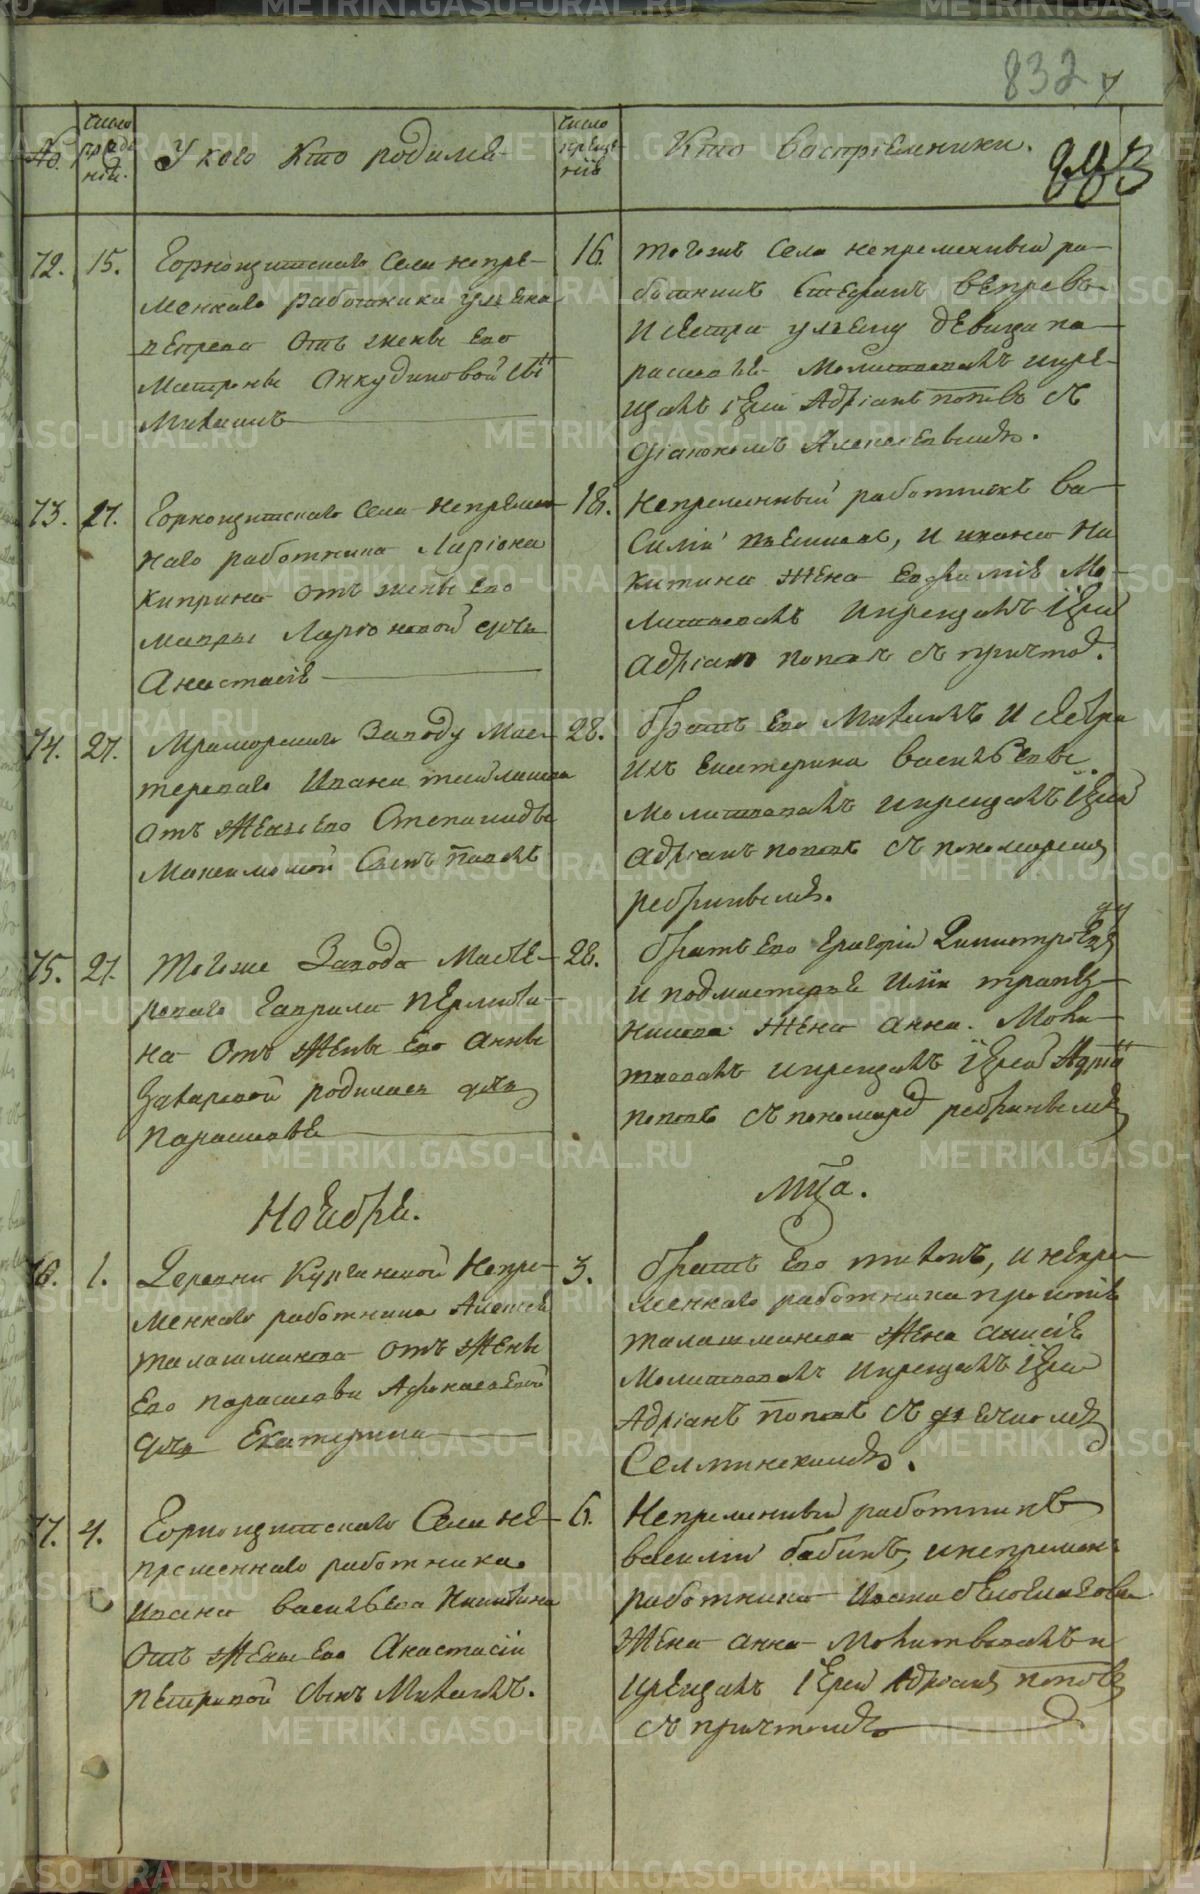 832
883
№.
Число
рожде
ній.
У кого Кто родился
Число
креще
нія
Кто воспріемники.
72.
15.
Горнощитскаго Села непре-
меннаго работника ульяна
вепрева Отъ жены Его
Матроны Анкудиновой сынъ
Михаилъ
16.
тогожъ Села непременный ра-
ботникъ Стефанъ Вепревъ
И сестра ульяну девица па-
расковья Молитвовалъ икре-
щалъ іерей Адріанъ поповъ съ
діакономъ Алексеевымъ.
73.
17.
Горнощитскаго Села Непремен
наго работника Ларіона
Киприна отъ жены Его
Мавры Ларіоновой дочь
Анастасія
18.
Непременный работникъ Ва-
силій, и ивана Ни
китина Жена Евфимія Мо-
литвовалъ Икрещалъ Іерей
Адріанъ поповъ съ причтом.
74.
27.
Мраморскаго Заводу Мас-
тероваго Ивана
отъ Жены Его Степаниды
Максимовой Сынъ Павелъ
28.
братъ Его Михаилъ И сестра
ихъ Екатерина васильевы.
Молитвовалъ икрещалъ Іерей
Адріанъ поповъ съ пономаремъ
ребринымъ.
75.
27.
Тогоже Завода Масте-
роваго Гаврила пермяки-
на Отъ Жены Его Анны
Захаровой родилась дочь
парасковья
28.
братъ Его Григорій Димитріевъ
и подмастерья Ильи трапез-
никова Жена Анна. Моли-
твовалъ икрещалъ Іерей Адріанъ
поповъ съ пономарем ребринымъ
Ноября.
Мца.
76.
1.
Деревни Курганской Непре-
меннаго работника Алексея
талашманова отъ Жены
Его парасковьи Афонасьевой
дочь Екатерина
3.
братъ Его тихонъ, и непре-
меннаго работника прокопія
талашманова Жена анисія
Молитвовалъ Икрещалъ Іерей
Адріанъ поповъ съ дьячкомъ
Селтинскимъ.
77.
4.
Горнощитскаго Села не-
пременнаго работника
ивана васильева Никитина
Отъ Жены Его Анастасіи
петровой сынъ Михаилъ.
6.
Непременный работникъ
василій бабинъ, инепремен:
работника Ивана белоглазова
Жена анна Молитвовалъ и
крещалъ Іерей Адріанъ поповъ
съ причтомъ